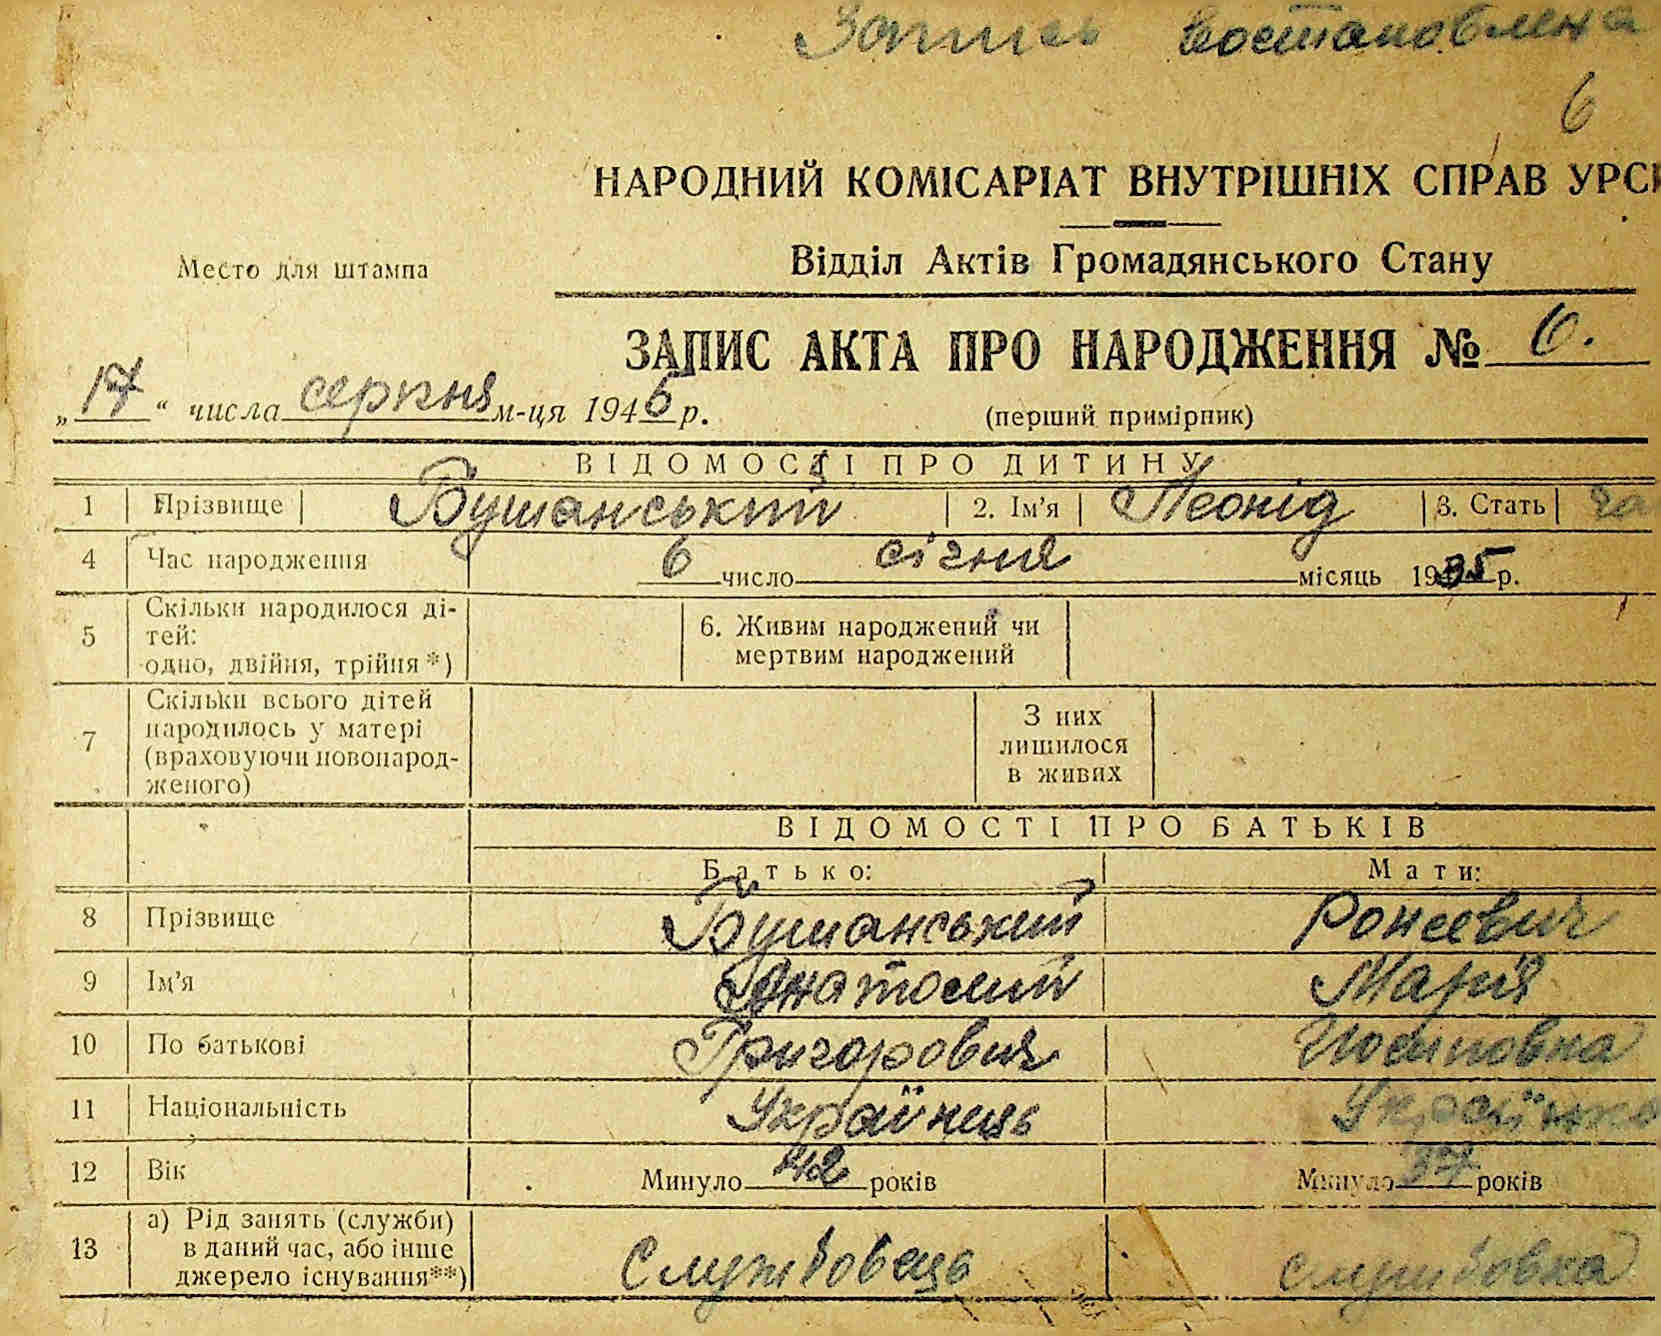 Запись востановлена
6
НАРОДНИЙ КОМІСАРІАТ ВНУТРІШНІХ СПРАВ УРС
Место для штампа
Відділ Актів Громадянського Стану
ЗАПИС АКТА ПРО НАРОДЖЕННЯ № 6.
„17“ числа серпня м-ця 1946 р.
(перший примірник)
ВІДОМОСТІ ПРО ДИТИНУ
1 Прізвище Бушанський 2. Ім'я Леонід 3. Стать
4 Час народження 6 число січня місяць 1935 р.
5 Скільки народилося ді-
тей:
одно, двійня, трійня*)
6. Живим народжений чи
мертвим народжений
7 Скільки всього дітей
народилось у матері
(враховуючи новонарод-
женого)
З них
лишилося
в живих
ВІДОМОСТІ ПРО БАТЬКІВ
Батько: Мати:
8 Прізвище Бушанський
9 Ім'я Анатолий Марія
10 По батькові Григорович Иосиповна
11 Національність Українець Українка
12 Вік Минуло 42 років Минуло 37 років
13 а) Рід занять (служби)
в даний час, або інше
джерело існування**)
Службовець службовка